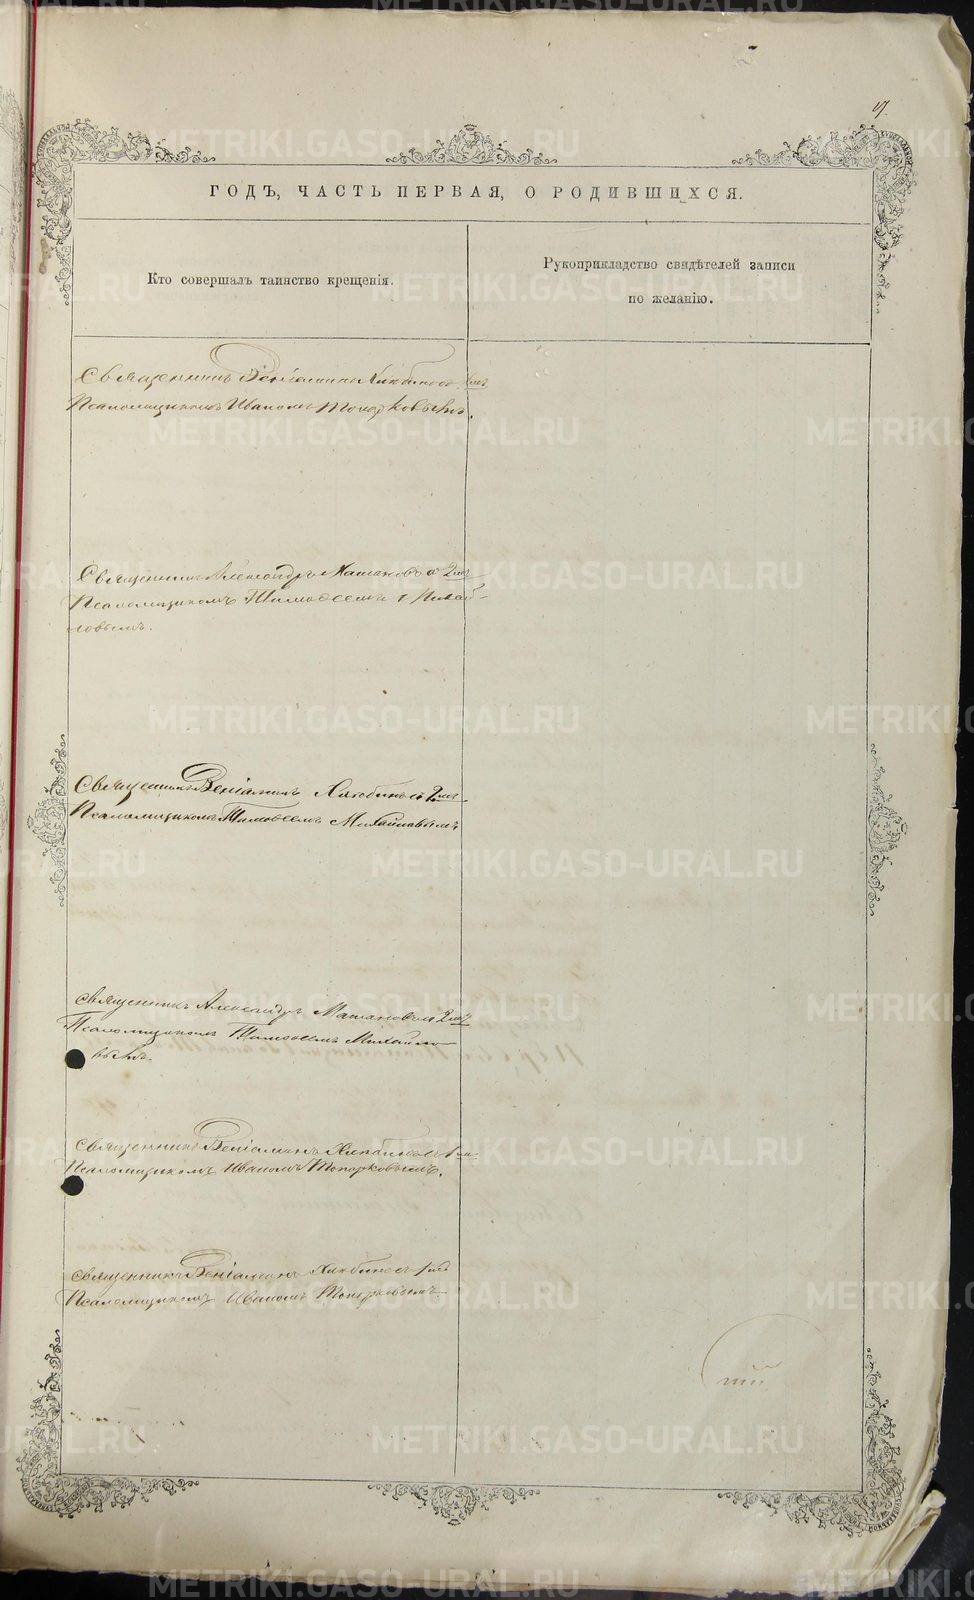 17.
ГОДЪ, ЧАСТЬ ПЕРВАЯ, О РОДИВШИХСЯ.
Кто совершалъ таинство крещенія.
Рукоприкладство свидѣтелей записи
по желанію.
Священникъ Веніаминъ
Псаломщикомъ Иваномъ Топорковымъ.
Священникъ Александръ 2мъ
Псаломщикомъ Тимоѳеемъ Михай-
ловымъ.
Священникъ Веніаминъ 2мъ
Псаломщикомъ Тимоѳеемъ Михайловымъ
Священникъ Александръ 2мъ
Псаломщикомъ Тимоѳеемъ Михайло-
вымъ.
Священникъ Веніаминъ
Псаломщикомъ Иваномъ Топорковымъ.
Священникъ Веніаминъ
Псаломщикомъ Иваномъ Топорковымъ
METRIKI.GASO-URAL.RU